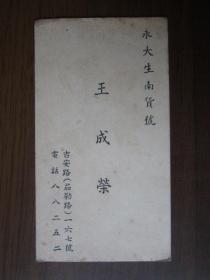 永大生南貨號
王成榮
吉安路(茄勒路)一六七號
電話八八二五二